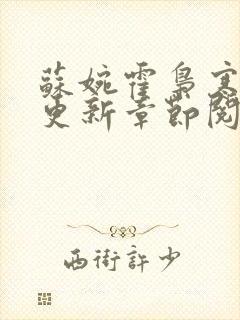 蘇婉霍梟寒
更新章節閱
西街許少